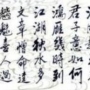 君子意如何
鴻雁幾時到
江湖秋水多
文章憎命達
魑魅喜人過